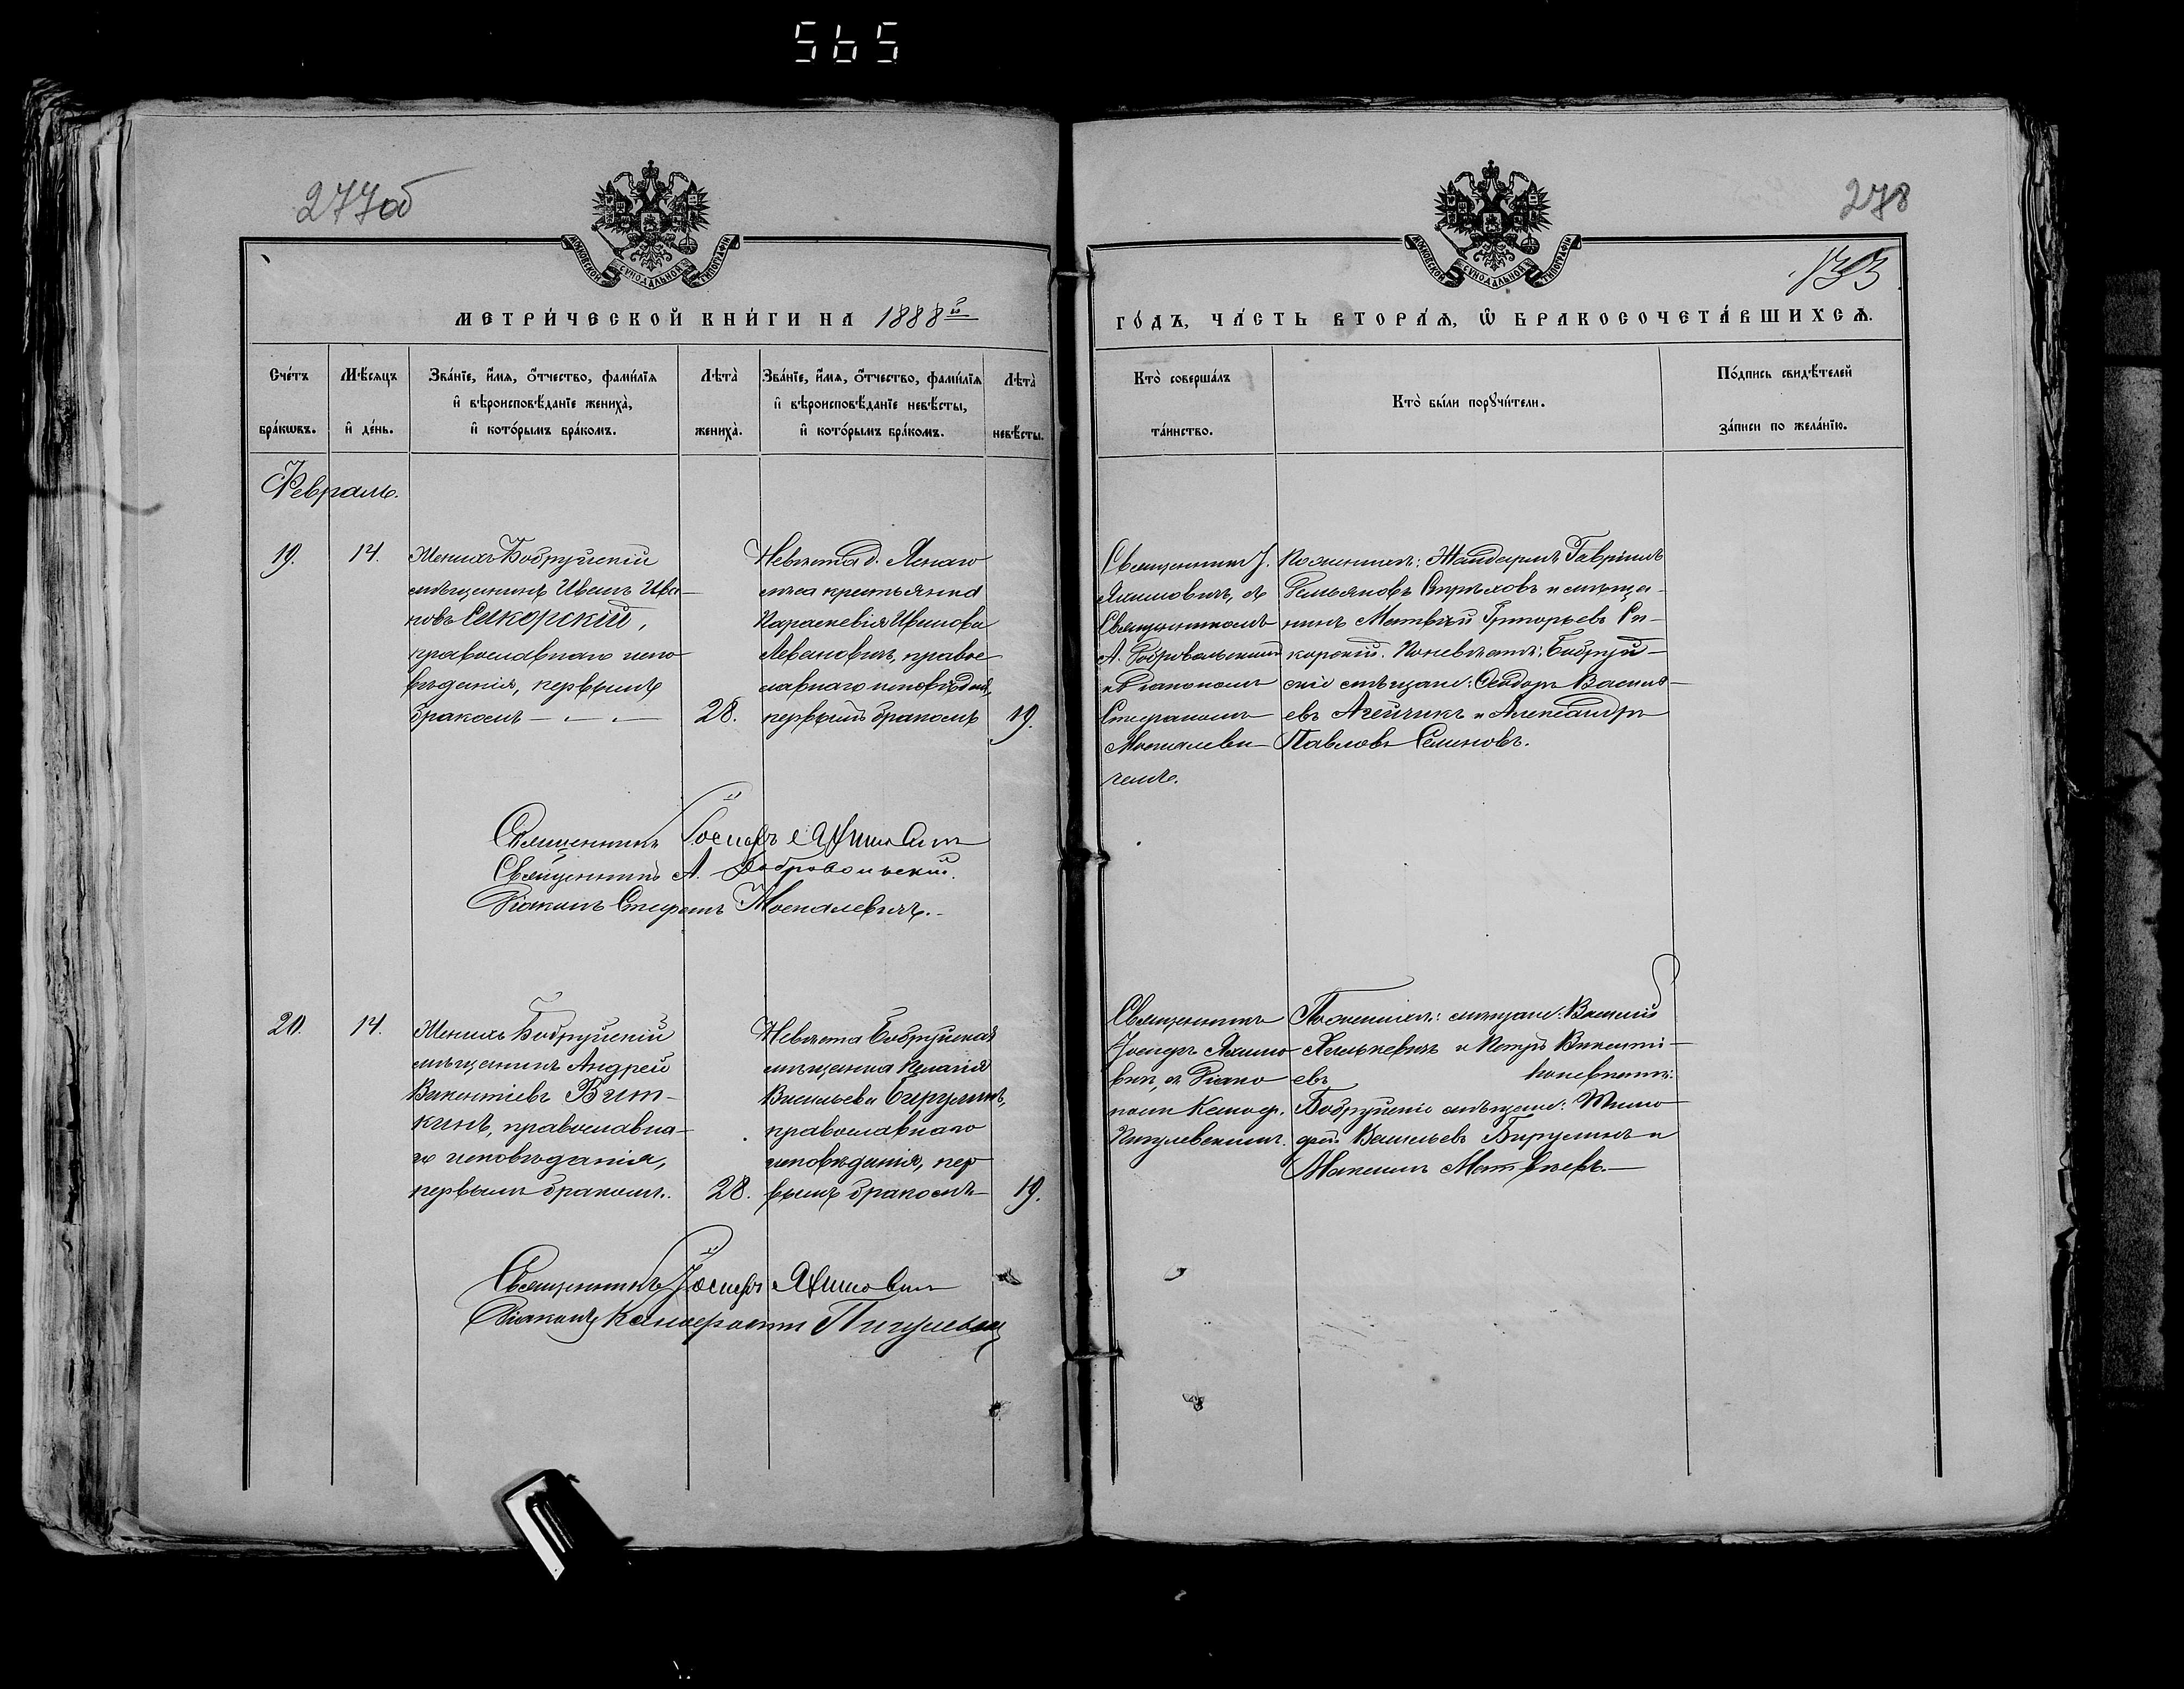 565
277об
278
МОСКОВСКОЙ СѴНОДАЛЬНОЙ ТИПОГРАФІИ
МОСКОВСКОЙ СѴНОДАЛЬНОЙ ТИПОГРАФІИ
МЕТРИ́ЧЕСКОЙ КНИ́ГИ НА 1888й
ГО́ДЪ, ЧА́СТЬ ВТОРА́Ѧ, Ѿ БРАКОСОЧЕТА́ВШИХСѦ.
Сче́тъ бра́кѡвъ.
Мѣ́сяцъ и҆ де́нь.
Зва́нїе, и҆́мѧ, о҆́тчество, фами́лїѧ
и҆ вѣроисповѣ́данїе жениха̀,
и҆ кото́рымъ бра́комъ.
Лѣта̀ жениха̀.
Зва́нїе, и҆́мѧ, о҆́тчество, фами́лїѧ
и҆ вѣроисповѣ́данїе невѣ́сты,
и҆ кото́рымъ бра́комъ.
Лѣта̀ невѣ́сты.
Кто̀ соверша́лъ та́инство.
Кто̀ бы́ли порꙋчи́тели.
По́дпись свидѣ́телей
за́писи по жела́нїю.
Февраль.
19.
14.
Женихъ Бобруйскій
мѣщанинъ Иванъ Ива-
новъ Сикорскій,
православнаго испо
вѣданія, первымъ
бракомъ
28.
Невѣста д.
крестьянка
Параскевія
Леванович, правос
лавнаго исповѣданія,
первымъ бракомъ
19.
Священник І.
Якимович, съ
Священником
А. Добровольским
и Діаконом
Стефаном
Москалеви-
чемъ.
По женихѣ: Жандармъ Гавріилъ
и мѣща-
нинъ Матвѣй Григорьевъ Си-
корскій. По невѣстѣ: Бобруй-
скіе мѣщане: Ѳеодоръ Василь-
евъ Агейчикъ и Александръ
Павловъ Семеновъ.
Священникъ Іосифъ Якимович
Священникъ А. Добровольскій.
Діаконъ Стефанъ Москалевичъ.
20.
14.
Женихъ Бобруйскій
мѣщанинъ Андрей
Викентіевъ Вит-
кинъ, православна-
го исповѣданія,
первым бракомъ.
28.
Невѣста Бобруйская
мѣщанка Пелагія
Васильева Бирулинъ,
православнаго
исповѣданія, пер
вымъ бракомъ
19.
Священникъ
Іосифъ Якимо-
вич, съ Діако
ном Ксеноф.
Пигулевским.
По женихѣ: мѣщане: Василій
и Петръ Викенті-
евъ По невѣстѣ:
Бобруйскіе мѣщане: Тимо
фей Васильевъ Бирулинъ и
Максим Матвѣевъ.
Священникъ Іосифъ Якимович
Діаконъ Ксенофонт Пигулевскій